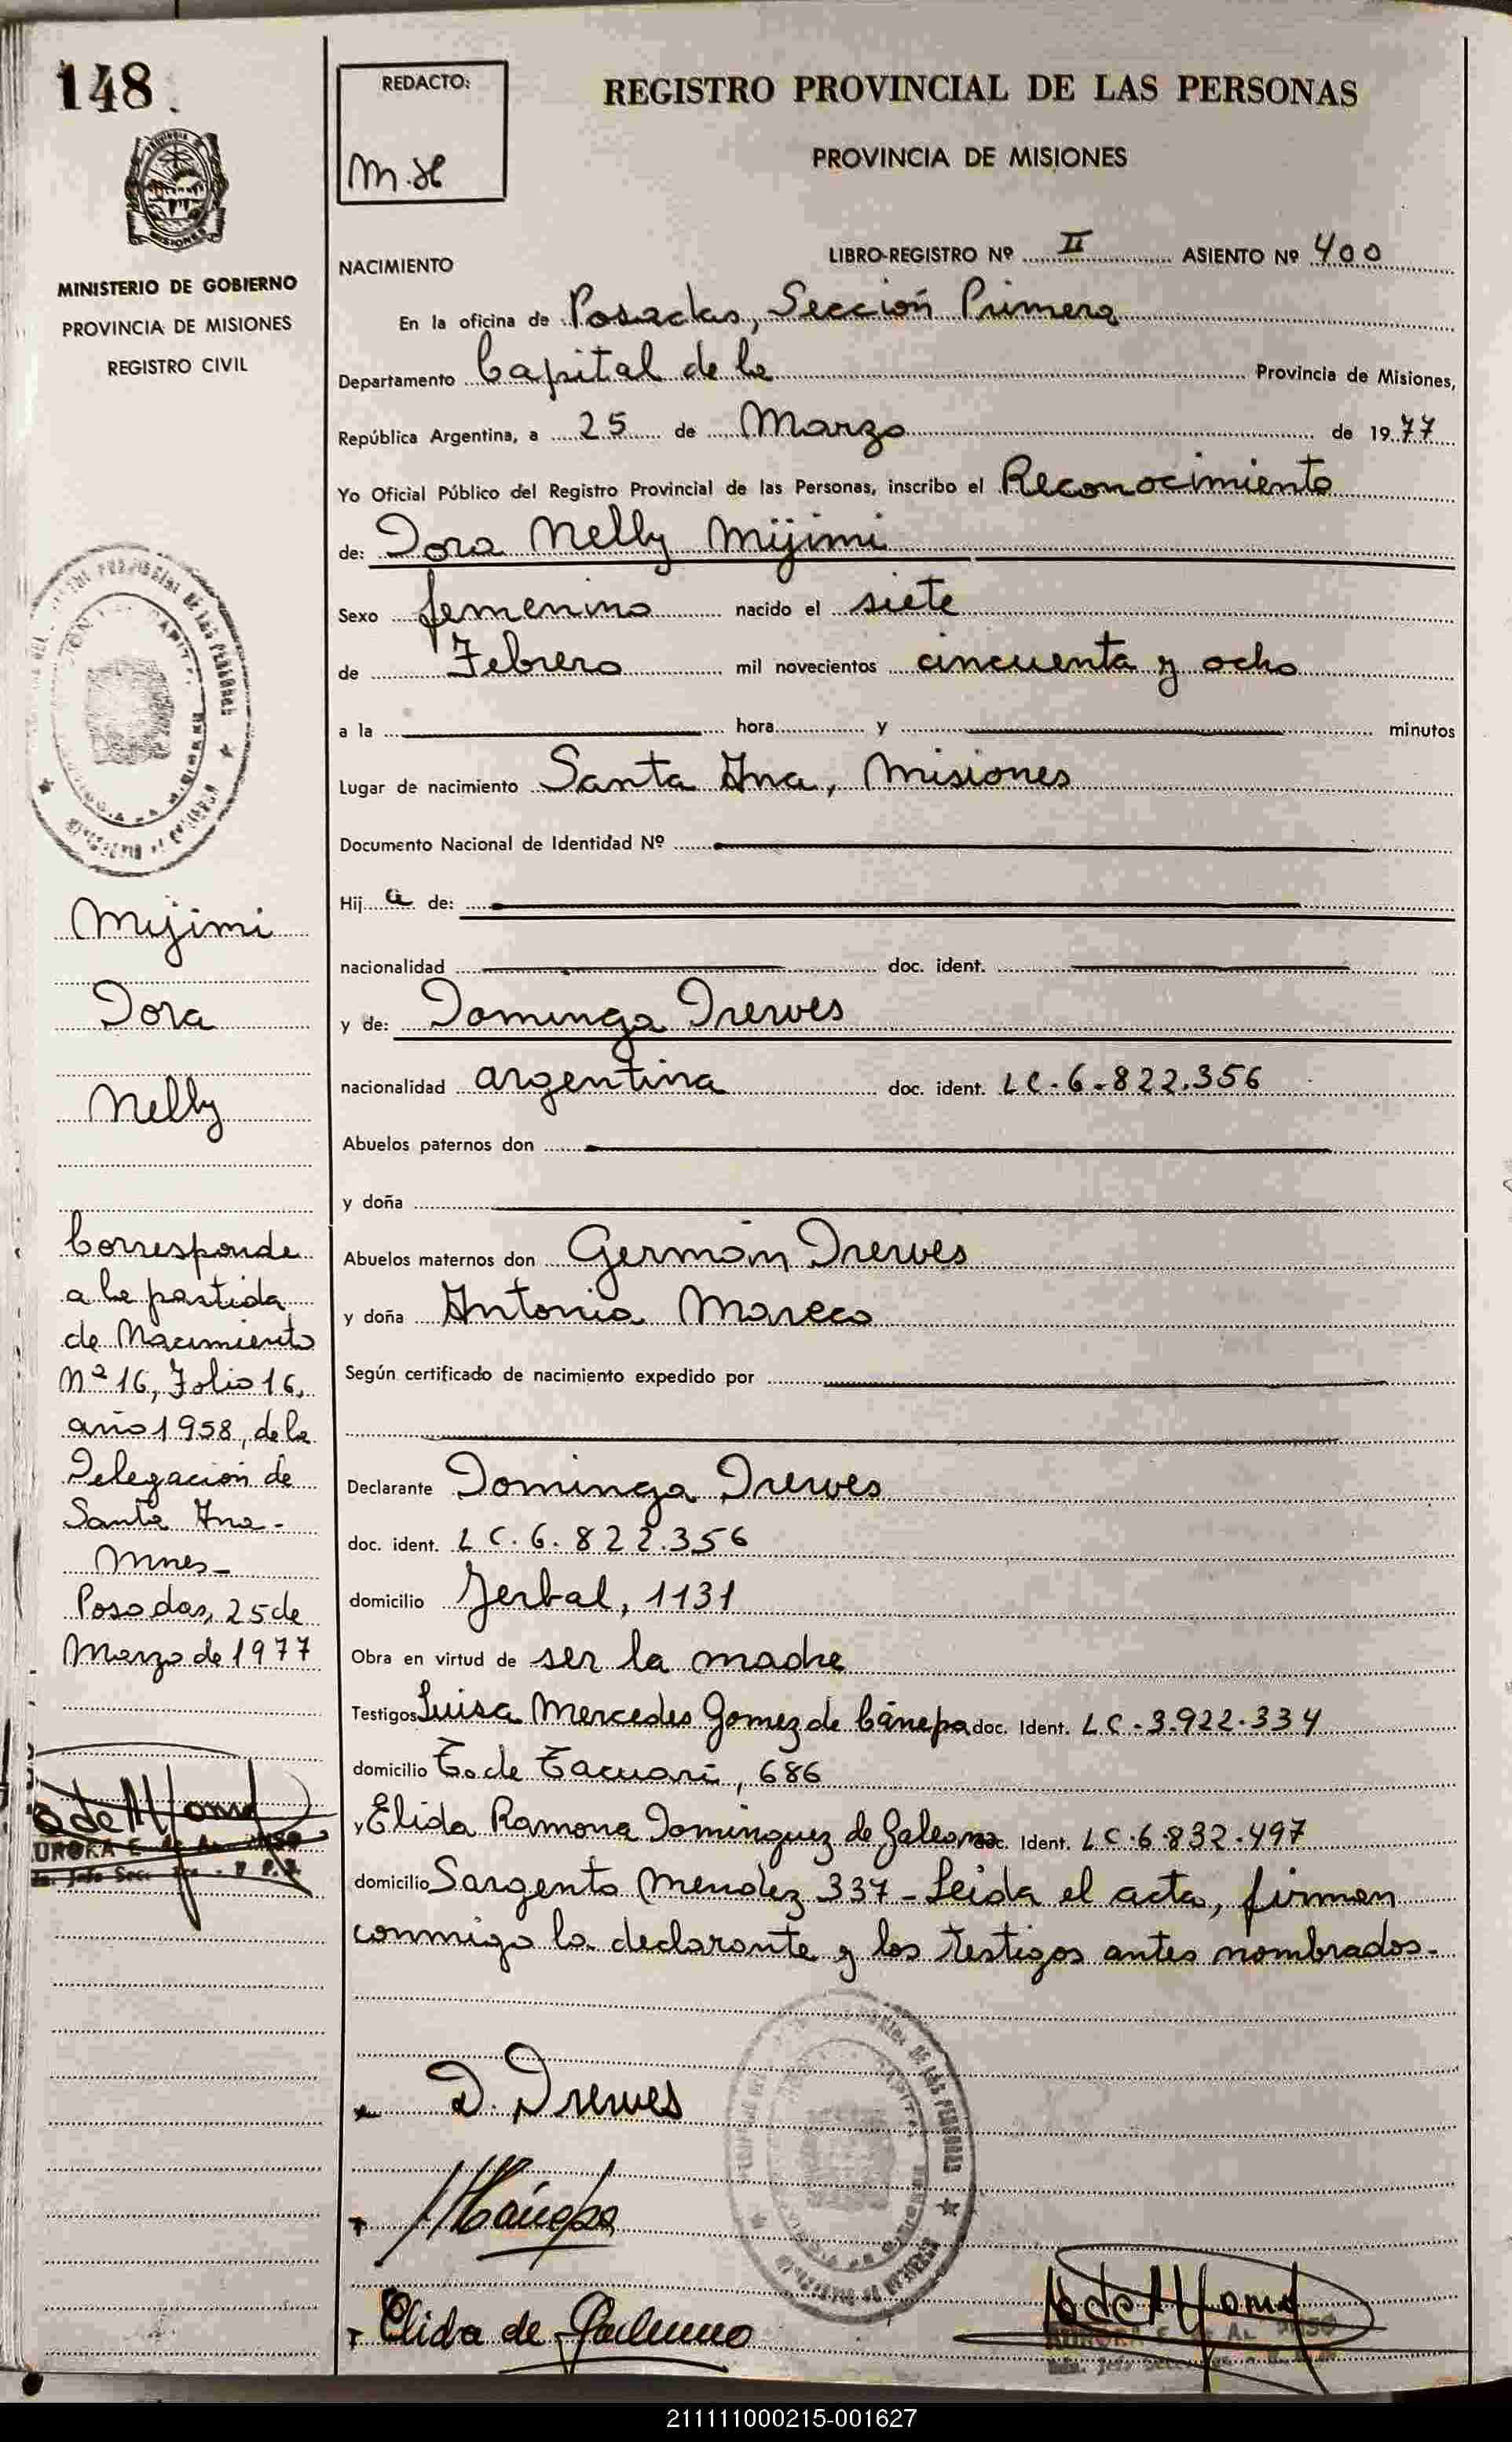 148.
REDACTO:
M.H
REGISTRO PROVINCIAL DE LAS PERSONAS
PROVINCIA DE MISIONES
MISIONES
MINISTERIO DE GOBIERNO
PROVINCIA DE MISIONES
REGISTRO CIVIL
LIBRO-REGISTRO Nº II ASIENTO Nº 400
NACIMIENTO
En la oficina de Posadas, Sección Primera
Departamento Capital de la Provincia de Misiones,
República Argentina, a 25 de Marzo de 1977
Yo Oficial Público del Registro Provincial de las Personas, inscribo el Reconocimiento
de: Dora Nelly Mijimi
Sexo femenino nacido el siete
de Febrero mil novecientos cincuenta y ocho
a la hora y minutos
Lugar de nacimiento Santa Ana, Misiones
Documento Nacional de Identidad Nº
Hij a de:
nacionalidad doc. ident.
y de: Dominga Drewes
nacionalidad argentina doc. ident. LC-6-822.356
Abuelos paternos don
y doña
Abuelos maternos don Germán Drewes
y doña Antonia Mareco
Según certificado de nacimiento expedido por
Declarante Dominga Drewes
doc. ident. LC.6.822.356
domicilio Yerbal, 1131
Obra en virtud de ser la madre
Testigos Luisa Mercedes Gomez de Cánepa doc. Ident. LC-3.922.334
domicilio T. de Tacuarí, 686
y Elida Ramona Dominguez de Ident. LC.6.832.497
domicilio Sargento Mendez 337 - Leida el acta, firman
conmigo la declarante y los testigos antes nombrados.-
Mijimi
Dora
Nelly
Corresponde
a la partida
de Nacimiento
Nº 16, Folio 16,
año 1958, de la
Delegación de
Santa Ana-
Mnes-
Posadas, 25 de
Marzo de 1977
D. Drewes
Cánepa
Elida de
211111000215-001627